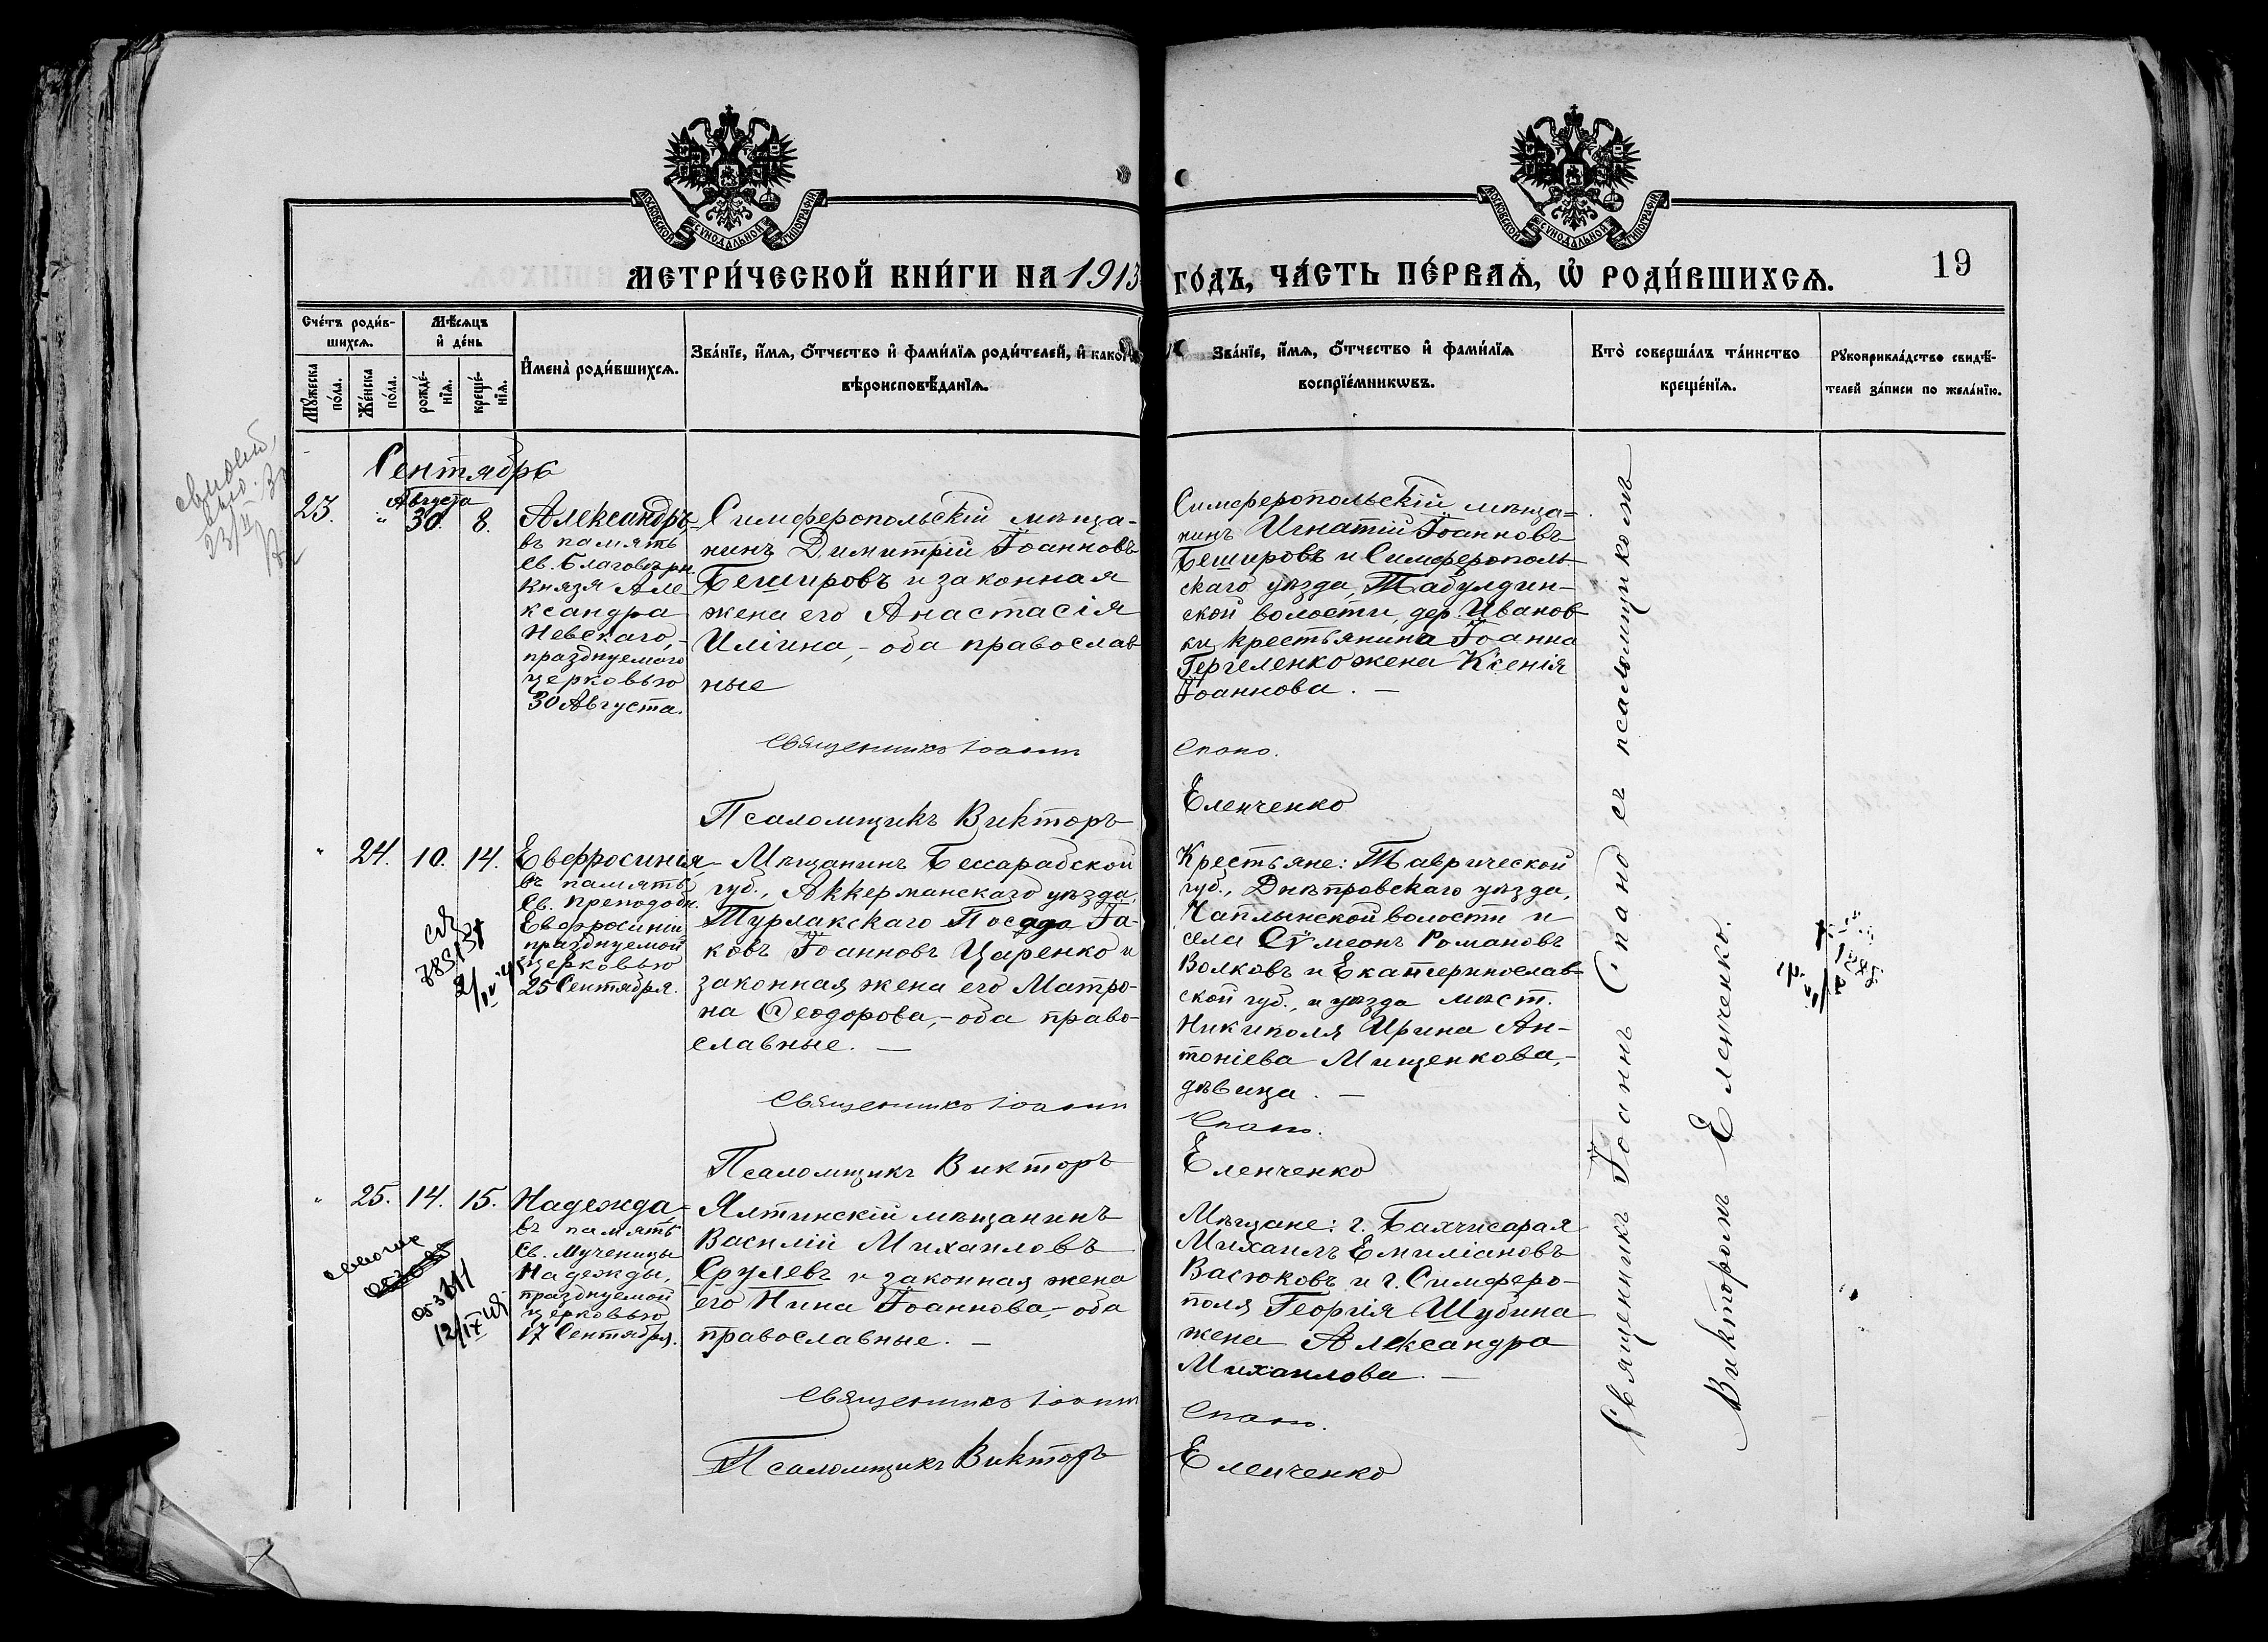 МОСКОВСКОЙ СУНОДАЛЬНОЙ ТИПОГРАФІИ
МОСКОВСКОЙ СУНОДАЛЬНОЙ ТИПОГРАФІИ
МЕТРИ́ЧЕСКОЙ КНИ́ГИ НА 1913 ГО́ДЪ, ЧА́СТЬ ПЕ́РВАЯ, Ѿ РОДИ́ВШИХСЯ.
19
Сче́тъ роди́в-
шихся.
Мꙋ́жеска
по́ла.
Же́нска
по́ла.
Мѣ́сяцъ
и҆ де́нь
рожде́-
нїя.
креще́-
нїя.
И҆мена̀ роди́вшихся.
Зва́нїе, и҆́мя, ѻ҆́тчество и҆ фами́лїя роди́телей, и҆ како́гѡ
вѣроисповѣ́данїя.
Зва́нїе, и҆́мя, ѻ҆́тчество и҆ фами́лїя
воспрїе́мникѡвъ.
Кто̀ соверша́лъ та́инство
креще́нїя.
Рꙋкоприкла́дство свидѣ́-
телей за́писи по жела́нїю.
Сентябрь
23.
"
Августа
30.
8.
Александръ-
въ память
Св. Благовѣрн.
Князя Але
ксандра
Невскаго,-
празднуемаго
церковью
30 Августа.
Симферопольскій мѣща-
нинъ Димитрій Іоанновъ
Бешировъ и законная
жена его Анастасія
Иліина,- оба православ
ные
Симферопольскій мѣща=
нинъ Игнатій Іоанновъ
Бешировъ и Симферополь-
скаго уѣзда, Табулдин-
ской волости, дер. Иванов-
ки, крестьянина Іоанна
Гергеленко жена Ксенія
Іоаннова. —
Священникъ Іоаннъ
Спано.
Псаломщикъ Викторъ
Еленченко
"
24.
10.
14.
Евфросинія,-
въ память
Св. Преподобн.
Евфросиніи,
празднуемой
церковью
25 Сентября.
Мѣщанинъ Бессарабской
губ., Аккерманскаго уѣзда,
Турлакскаго Посада Іа-
ковъ Іоанновъ Царенко и
законная жена его Матро-
на Ѳеодорова,- оба право-
славные. —
Крестьяне: Таврической
губ., Днѣпровскаго уѣзда,
Чаплынской волости и
села Сѵмеонъ Романовъ
Волковъ и Екатеринослав-
ской губ., и уѣзда мѣст.
Никиполя Ирина Ан-
тоніева Мищенкова,-
дѣвица. —
Священникъ Іоаннъ
Спано.
Псаломщикъ Викторъ
Еленченко
"
25.
14.
15.
Надежда,-
въ память
Св. Мученицы
Надежды,
празднуемой
церковью
17 Сентября.
12/IX
Ялтинскій мѣщанинъ
Василій Михаиловъ
Срулевъ и законная жена
его Нина Іоаннова,- оба
православные. —
Мѣщане: г. Бахчисарая
Михаилъ Емиліановъ
Васюковъ и г. Симферо-
поля Георгія Шубина
жена Александра
Михаилова. —
Священникъ Іоаннъ
Спано.
Псаломщикъ Викторъ
Еленченко
Священникъ Іоаннъ Спано съ псаломщикомъ
Викторомъ Еленченко.